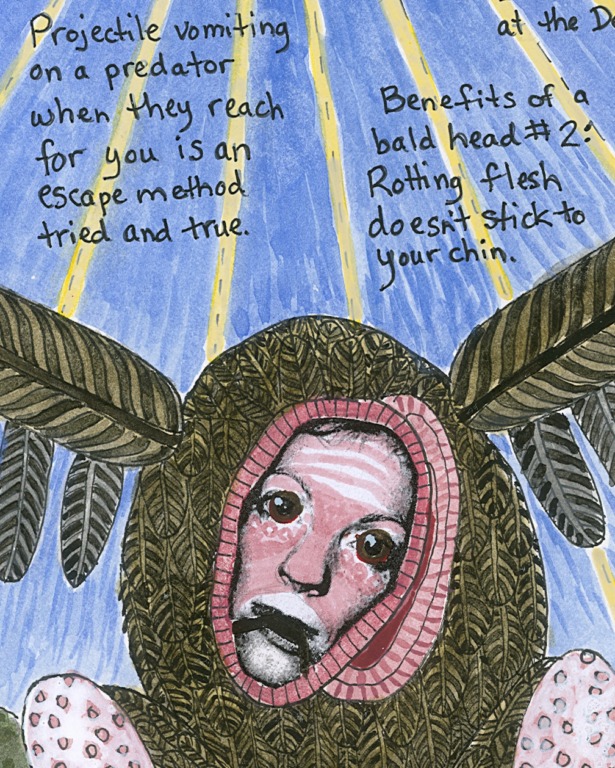 Projectile vomiting
on a predator
when they reach
for you is an
escape method
tried and true.
at the
Benefits of a
bald head #2:
Rotting flesh
doesn't stick to
your chin.